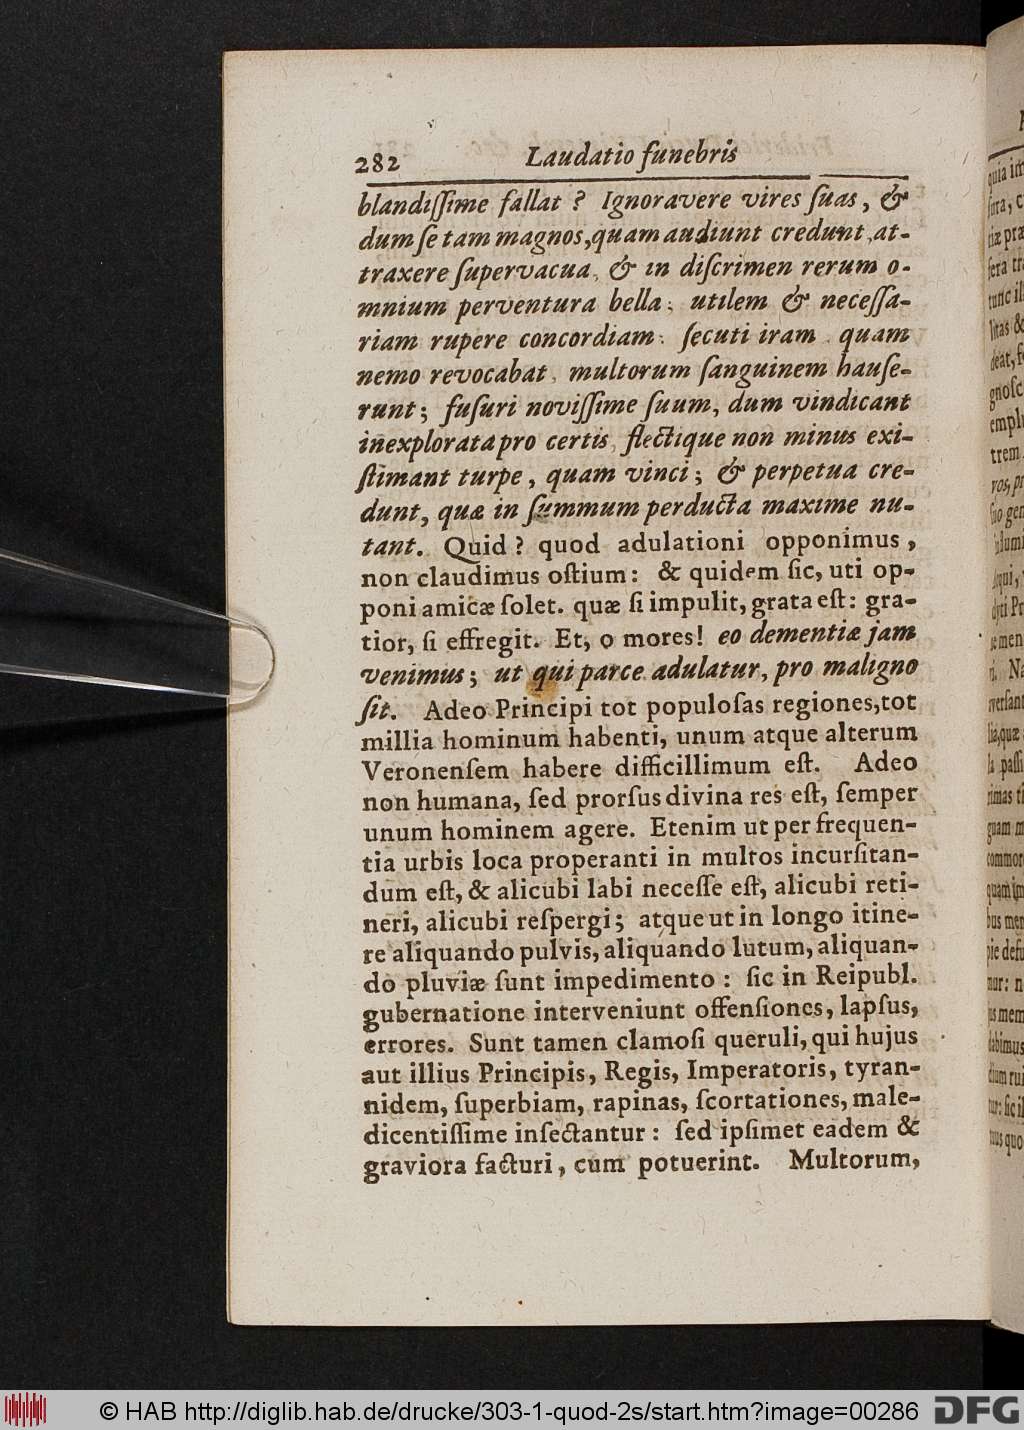 282 Laudatio funebris
blandiſſime fallat? Ignoravere vires ſuas, &
dum ſe tam magnos, quam audiunt credunt, at-
traxere ſupervacua, & in diſcrimen rerum o-
mnium perventura bella: utilem & neceſſa-
riam rupere concordiam: ſecuti iram quam
nemo revocabat, multorum ſanguinem hauſe-
runt; fuſuri noviſſime ſuum, dum vindicant
inexplorata pro certis, flectique non minus exi-
ſtimant turpe, quam vinci; & perpetua cre-
dunt, quæ in ſummum perducta maxime nu-
tant. Quid? quod adulationi opponimus,
non claudimus oſtium: & quidem ſic, uti op-
poni amicæ ſolet. quæ ſi impulit, grata eſt: gra-
tior, ſi effregit. Et, o mores! eo dementiæ jam
venimus; ut qui parce adulatur, pro maligno
ſit. Adeo Principi tot populoſas regiones, tot
millia hominum habenti, unum atque alterum
Veronenſem habere difficillimum eſt. Adeo
non humana, ſed prorſus divina res eſt, ſemper
unum hominem agere. Etenim ut per frequen-
tia urbis loca properanti in multos incurſitan-
dum eſt, & alicubi labi neceſſe eſt, alicubi reti-
neri, alicubi reſpergi; atque ut in longo itine-
re aliquando pulvis, aliquando lutum, aliquan-
do pluviæ ſunt impedimento: ſic in Reipubl.
gubernatione interveniunt offenſiones, lapſus,
errores. Sunt tamen clamoſi queruli, qui hujus
aut illius Principis, Regis, Imperatoris, tyran-
nidem, ſuperbiam, rapinas, ſcortationes, male-
dicentiſſime inſectantur: ſed ipſimet eadem &
graviora facturi, cum potuerint. Multorum,
© HAB http://diglib.hab.de/drucke/303-1-quod-2s/start.htm?image=00286 DFG